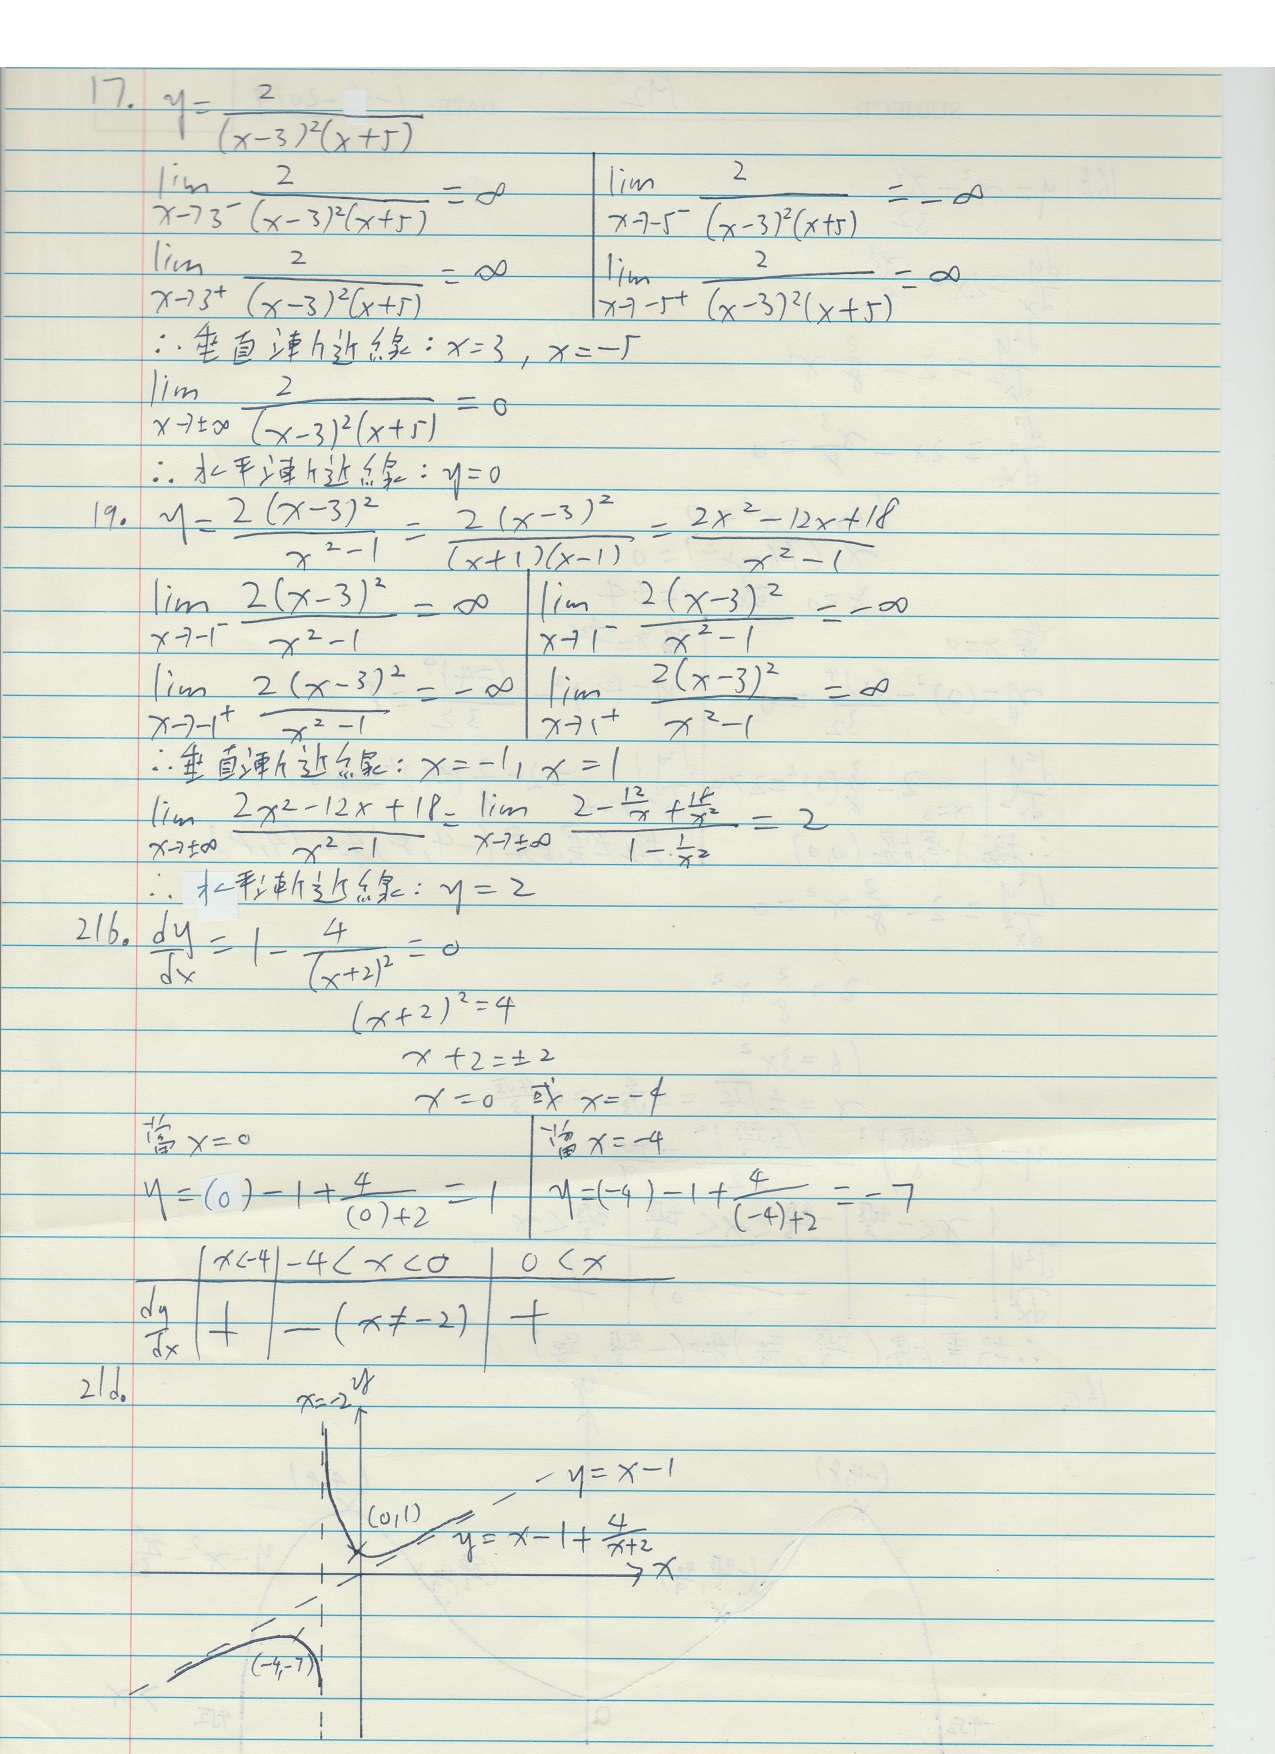 17. y = 2/((x-3)²(x+5))
lim x→3⁻ 2/((x-3)²(x+5)) = ∞ | lim x→-5⁻ 2/((x-3)²(x+5)) = -∞
lim x→3⁺ 2/((x-3)²(x+5)) = ∞ | lim x→-5⁺ 2/((x-3)²(x+5)) = ∞
∴垂直漸近線: x=3, x=-5
lim x→±∞ 2/((x-3)²(x+5)) = 0
∴水平漸近線: y=0
19. y = 2(x-3)²/(x²-1) = 2(x-3)²/((x+1)(x-1)) = (2x²-12x+18)/(x²-1)
lim x→-1⁻ 2(x-3)²/(x²-1) = ∞ | lim x→1⁻ 2(x-3)²/(x²-1) = -∞
lim x→-1⁺ 2(x-3)²/(x²-1) = -∞ | lim x→1⁺ 2(x-3)²/(x²-1) = ∞
∴垂直漸近線: x=-1, x=1
lim x→±∞ (2x²-12x+18)/(x²-1) = lim x→±∞ (2-12/x+18/x²)/(1-1/x²) = 2
∴水平漸近線: y=2
21b. dy/dx = 1 - 4/(x+2)² = 0
(x+2)²=4
x+2=±2
x=0 或 x=-4
當 x=0 | 當 x=-4
y=(0)-1+4/((0)+2) = 1 | y=(-4)-1+4/((-4)+2) = -7
| x<-4 | -4<x<0 | 0<x
dy/dx | + | -(x≠-2) | +
21d.
x=-2
y
y=x-1
(0,1)
y=x-1+4/(x+2)
x
(-4,-7)